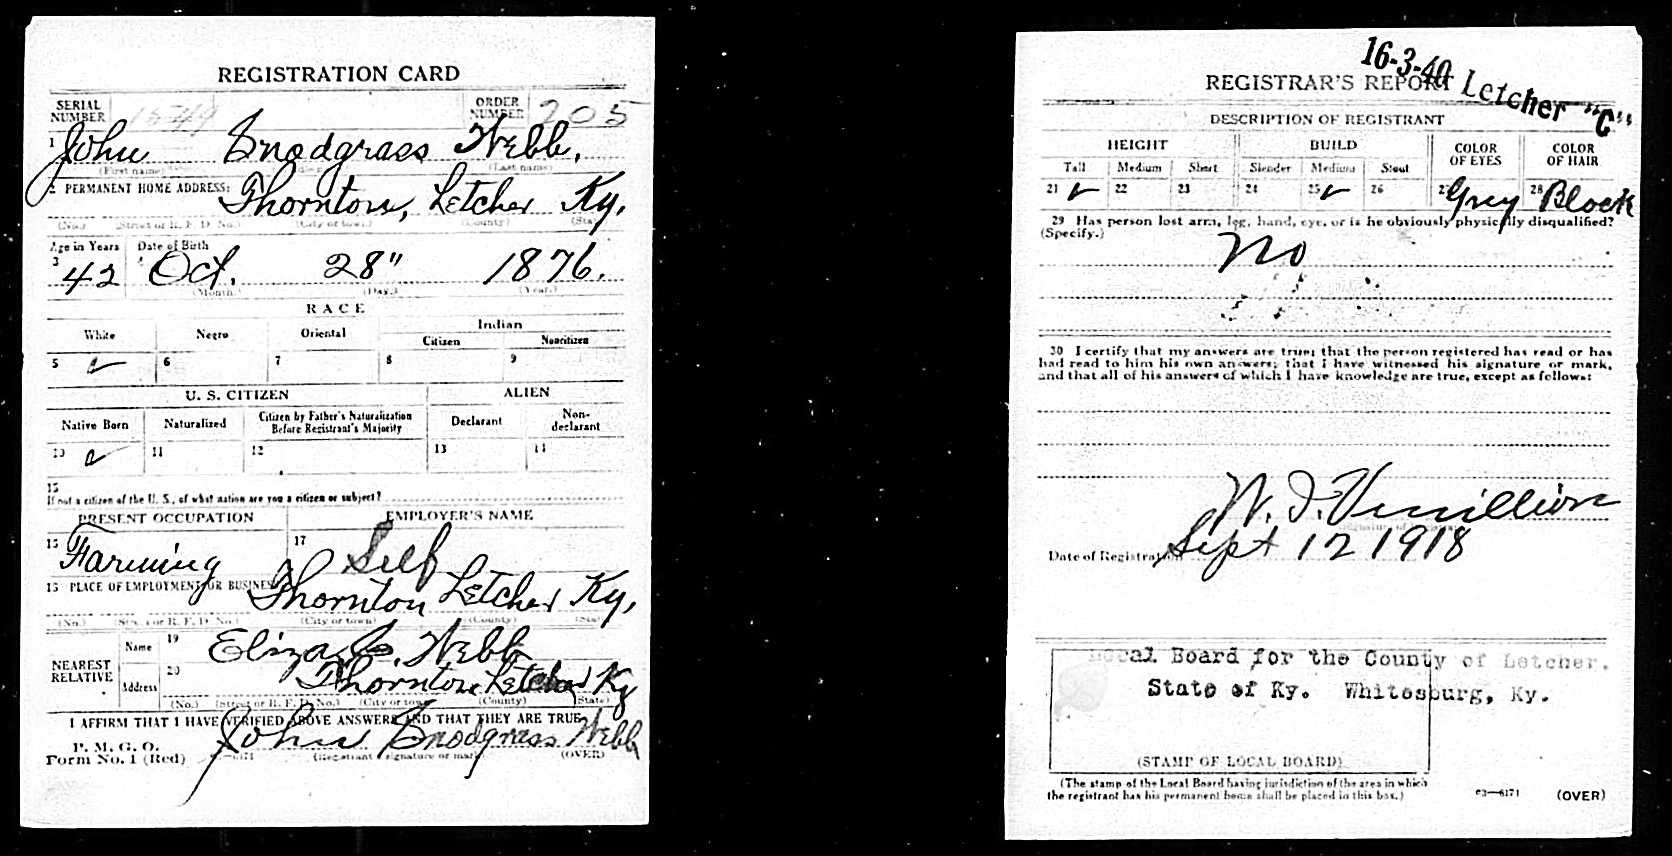 REGISTRATION CARD
SERIAL NUMBER 1549 ORDER NUMBER 205
1 John Snodgrass Webb.
(First name) (Last name)
2 PERMANENT HOME ADDRESS: Thornton, Letcher Ky.
(No.) (Street or R. F. D. No.) (City or town) (County) (State)
Age in Years Date of Birth
3 42 4 Oct. 28" 1876.
(Month.) (Day.) (Year.)
RACE
White Negro Oriental Indian
Citizen Noncitizen
5 6 7 8 9
U. S. CITIZEN ALIEN
Native Born Naturalized Citizen by Father's Naturalization Before Registrant's Majority Declarant Non-declarant
10 11 12 13 14
15
If not a citizen of the U. S., of what nation are you a citizen or subject?
PRESENT OCCUPATION EMPLOYER'S NAME
16 Farming 17 Self
18 PLACE OF EMPLOYMENT OR BUSINESS: Thornton Letcher Ky.
(No.) (Street or R. F. D. No.) (City or town) (County) (State)
NEAREST RELATIVE Name 19 Eliza Webb
Address 20 Thornton Letcher Ky
(No.) (Street or R. F. D. No.) (City or town) (County) (State)
I AFFIRM THAT I HAVE VERIFIED ABOVE ANSWERS AND THAT THEY ARE TRUE
P. M. G. O.
Form No. 1 (Red) John Snodgrass Webb
(Registrant's signature or mark) (OVER)
16-3-40 Letcher "C"
REGISTRAR'S REPORT
DESCRIPTION OF REGISTRANT
HEIGHT BUILD COLOR OF EYES COLOR OF HAIR
Tall Medium Short Slender Medium Stout
21 22 23 24 25 26 27 Grey 28 Black
29 Has person lost arm, leg, hand, eye, or is he obviously physically disqualified?
(Specify.)
No
30 I certify that my answers are true; that the person registered has read or has
had read to him his own answers; that I have witnessed his signature or mark,
and that all of his answers of which I have knowledge are true, except as follows:
W. I. Vermillion
Date of Registration Sept 12 1918
Local Board for the County of Letcher.
State of Ky. Whitesburg, Ky.
(STAMP OF LOCAL BOARD)
(The stamp of the Local Board having jurisdiction of the area in which
the registrant has his permanent home shall be placed in this box.)
03—6171 (OVER)